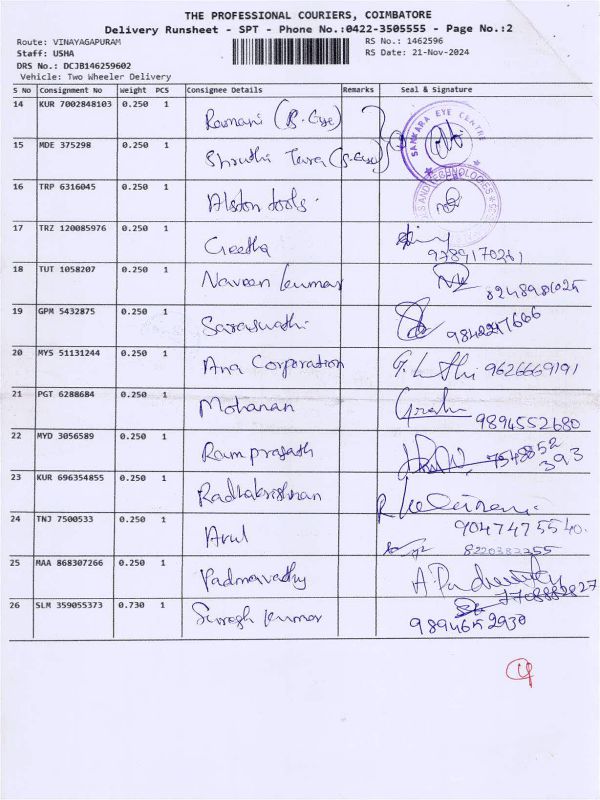 THE PROFESSIONAL COURIERS, COIMBATORE
Delivery Runsheet - SPT - Phone No.:0422-3505555 - Page No.:2
Route: VINAYAGAPURAM RS No.: 1462596
Staff: USHA RS Date: 21-Nov-2024
DRS No.: DCJB146259602
Vehicle: Two Wheeler Delivery
S No Consignment No Weight PCS Consignee Details Remarks Seal & Signature
14 KUR 7002848103 0.250 1 Ramani
SANKARA EYE CENTRE
15 MDE 375298 0.250 1 Shruthi
16 TRP 6316045 0.250 1 Alston tools
17 TRZ 120085976 0.250 1 Geetha
9789170261
18 TUT 1058207 0.250 1 Naveen Kumar
19 GPM 5432875 0.250 1 Saraswathi
20 MYS 51131244 0.250 1 Ana Corporation 9626669191
21 PGT 6288684 0.250 1 Mohanan
9894552680
22 MYD 3056589 0.250 1 Ramprasath
7548852
393
23 KUR 696354855 0.250 1 Radhakrishnan
24 TNJ 7500533 0.250 1 Arul
9047475540.
8220382255
25 MAA 868307266 0.250 1 Padmavathy
26 SLM 359055373 0.730 1 Suresh Kumar
9894652930